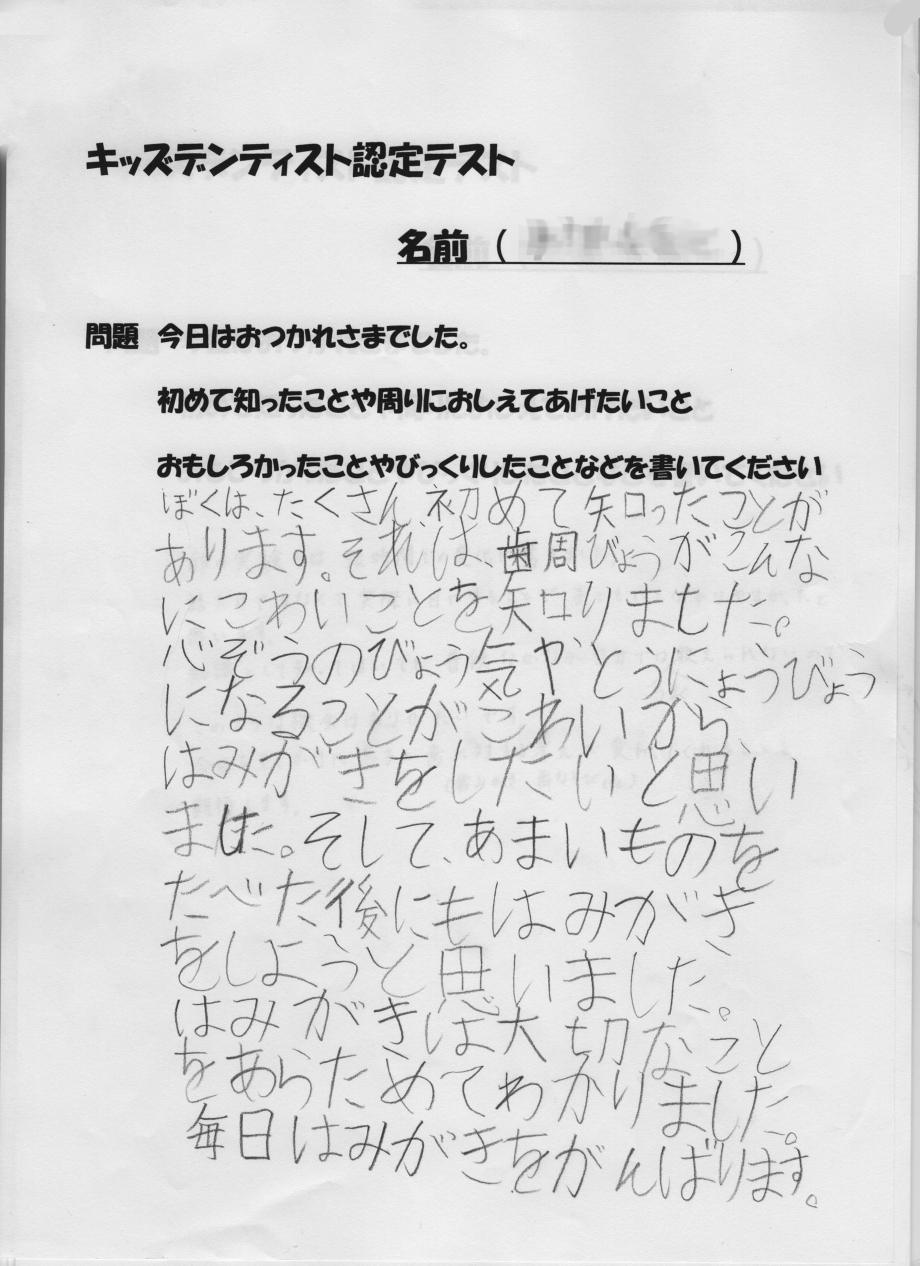 キッズデンティスト認定テスト
名前（　　　　　　）
問題　今日はおつかれさまでした。
初めて知ったことや周りにおしえてあげたいこと
おもしろかったことやびっくりしたことなどを書いてください
ぼくは、たくさん初めて知ったことが
あります。それは、歯周びょうがこんな
にこわいことを知りました。
心ぞうのびょう気やとうにょうびょう
になることがこわいから、
はみがきをしたいと思い
ました。そして、あまいものを
たべた後にもはみがき
をしようと思いました。
はみがきは大切なこと
をあらためてわかりました。
毎日はみがきをがんばります。